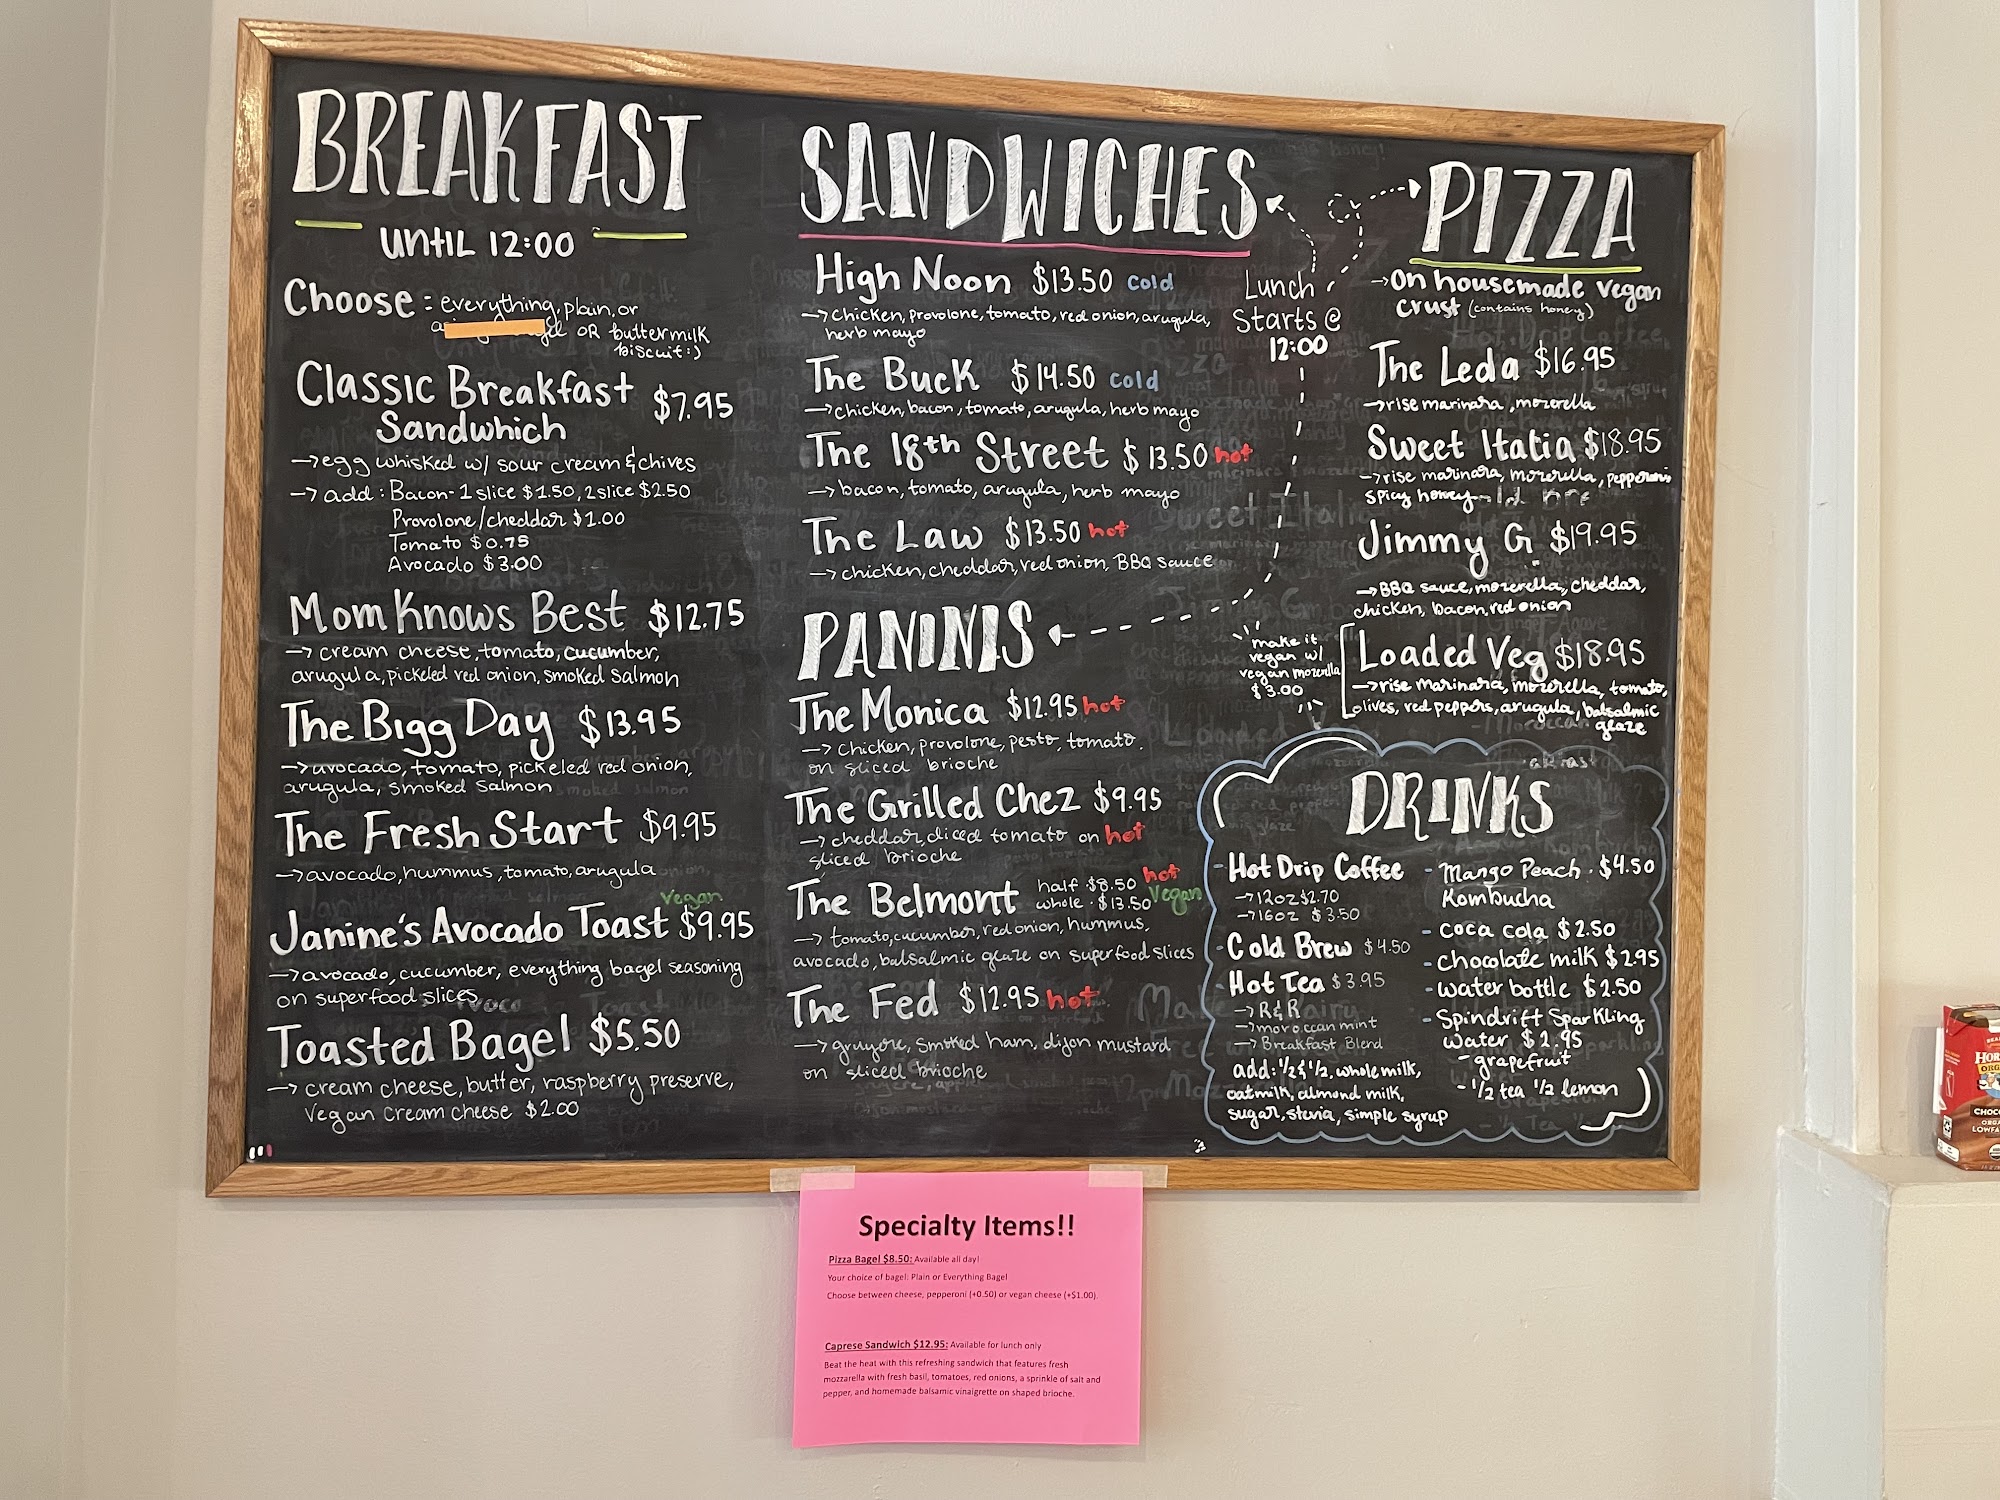 BREAKFAST
UNTIL 12:00
Choose: everything, plain, or
OR buttermilk
biscuit:)
Classic Breakfast $7.95
Sandwhich
→egg whisked w/ sour cream & chives
→ add: Bacon-1 slice $1.50, 2 slice $2.50
Provolone/cheddar $1.00
Tomato $0.75
Avocado $3.00
Mom Knows Best $12.75
→ cream cheese, tomato, cucumber,
arugula, pickeled red onion, smoked salmon
The Bigg Day $13.95
→avocado, tomato, pickeled red onion,
arugula, smoked salmon
The Fresh Start $9.95
→avocado, hummus, tomato, arugula
vegan
Janine's Avocado Toast $9.95
→avocado, cucumber, everything bagel seasoning
on superfood slices
Toasted Bagel $5.50
→ cream cheese, butter, raspberry preserve,
vegan cream cheese $2.00
SANDWICHES
High Noon $13.50 cold
→chicken, provolone, tomato, red onion, arugula,
herb mayo
The Buck $14.50 cold
→chicken, bacon, tomato, arugula, herb mayo
The 18th Street $13.50 hot
→bacon, tomato, arugula, herb mayo
The Law $13.50 hot
→chicken, cheddar, red onion, BBQ sauce
Lunch
Starts @
12:00
PANINIS
The Monica $12.95 hot
→ chicken, provolone, pesto, tomato.
on sliced brioche
The Grilled Chez $9.95
→cheddar, diced tomato on hot
sliced brioche
The Belmont half $8.50 hot
whole $13.50 vegan
→ tomato, cucumber, red onion, hummus,
avocado, balsalmic glaze on superfood slices
The Fed $12.95 hot
→gruyére, smoked ham, dijon mustard
on sliced brioche
PIZZA
→On housemade vegan
crust (contains honey)
The Leda $16.95
→rise marinara, mozerella
Sweet Italia $18.95
→rise marinara, mozerella, pepperoni
spicy honey
Jimmy G $19.95
→BBQ sauce, mozerella, cheddar,
chicken, bacon, red onion
make it
vegan w/
vegan mozerella
$3.00
Loaded Veg $18.95
→rise marinara, mozerella, tomato,
olives, red peppers, arugula, balsalmic
glaze
DRINKS
- Hot Drip Coffee
→12oz $2.70
→16oz $3.50
- Cold Brew $4.50
- Hot Tea $3.95
→ R&R
→moroccan mint
→ Breakfast Blend
add: 1/2 & 1/2, whole milk,
oatmilk, almond milk,
sugar, stevia, simple syrup
- Mango Peach · $4.50
Kombucha
- coca cola $2.50
- chocolate milk $2.95
- water bottle $2.50
- Spindrift Sparkling
water $2.95
- grapefruit
- 1/2 tea 1/2 lemon
Specialty Items!!
Pizza Bagel $8.50: Available all day!
Your choice of bagel: Plain or Everything Bagel
Choose between cheese, pepperoni (+0.50) or vegan cheese (+$1.00).
Caprese Sandwich $12.95: Available for lunch only
Beat the heat with this refreshing sandwich that features fresh
mozzarella with fresh basil, tomatoes, red onions, a sprinkle of salt and
pepper, and homemade balsamic vinaigrette on shaped brioche.